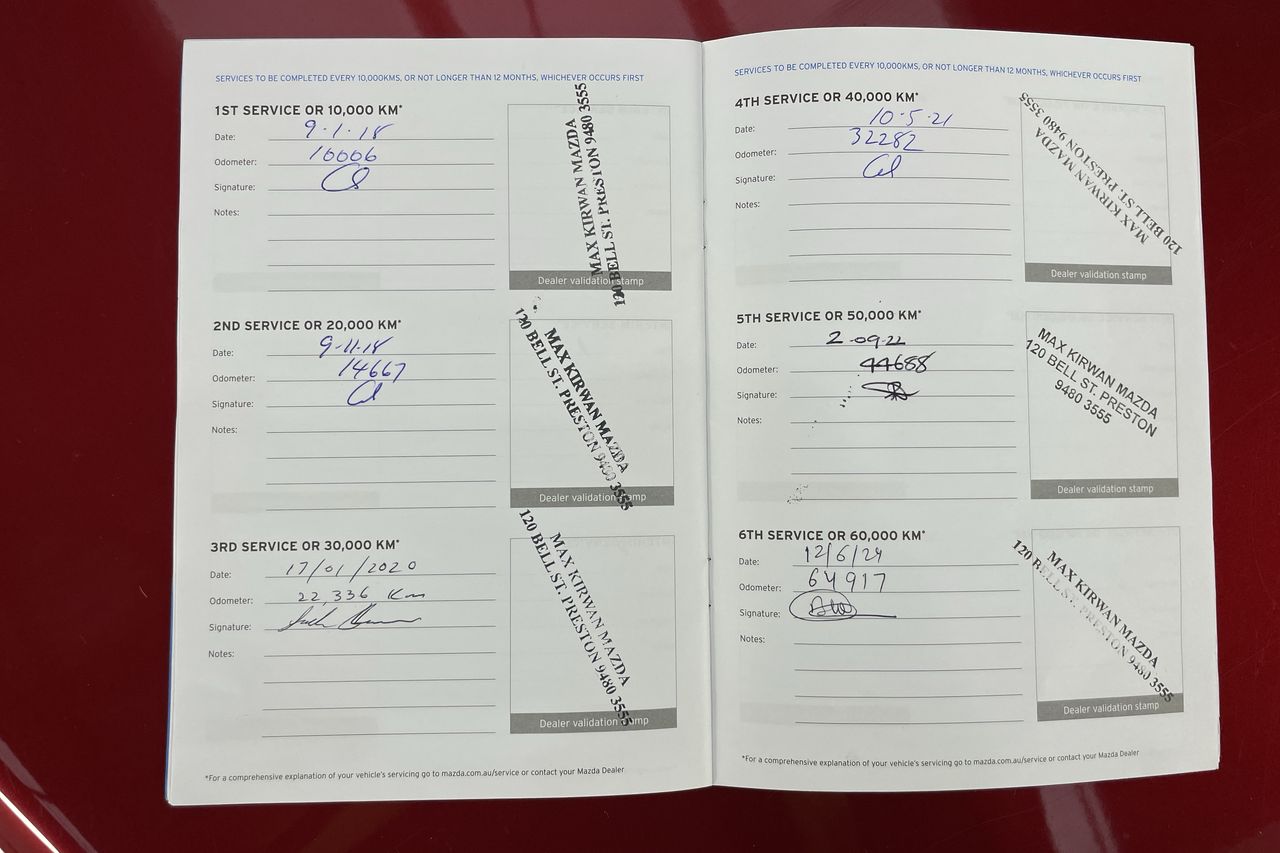 SERVICES TO BE COMPLETED EVERY 10,000KMS, OR NOT LONGER THAN 12 MONTHS, WHICHEVER OCCURS FIRST
1ST SERVICE OR 10,000 KM*
Date: 9.1.18
Odometer: 10006
Signature:
Notes:
MAX KIRWAN MAZDA
120 BELL ST. PRESTON 9480 3555
Dealer validation stamp
2ND SERVICE OR 20,000 KM*
Date: 9.11.18
Odometer: 14667
Signature:
Notes:
MAX KIRWAN MAZDA
120 BELL ST. PRESTON 9480 3555
Dealer validation stamp
3RD SERVICE OR 30,000 KM*
Date: 17/01/2020
Odometer: 22,336 Km
Signature:
Notes:
MAX KIRWAN MAZDA
120 BELL ST. PRESTON 9480 3555
Dealer validation stamp
*For a comprehensive explanation of your vehicle's servicing go to mazda.com.au/service or contact your Mazda Dealer
SERVICES TO BE COMPLETED EVERY 10,000KMS, OR NOT LONGER THAN 12 MONTHS, WHICHEVER OCCURS FIRST
4TH SERVICE OR 40,000 KM*
Date: 10.5.21
Odometer: 32282
Signature:
Notes:
MAX KIRWAN MAZDA
120 BELL ST. PRESTON 9480 3555
Dealer validation stamp
5TH SERVICE OR 50,000 KM*
Date: 2.09.22
Odometer: 44688
Signature:
Notes:
MAX KIRWAN MAZDA
120 BELL ST. PRESTON
9480 3555
Dealer validation stamp
6TH SERVICE OR 60,000 KM*
Date: 12/6/24
Odometer: 64917
Signature:
Notes:
MAX KIRWAN MAZDA
120 BELL ST. PRESTON 9480 3555
Dealer validation stamp
*For a comprehensive explanation of your vehicle's servicing go to mazda.com.au/service or contact your Mazda Dealer